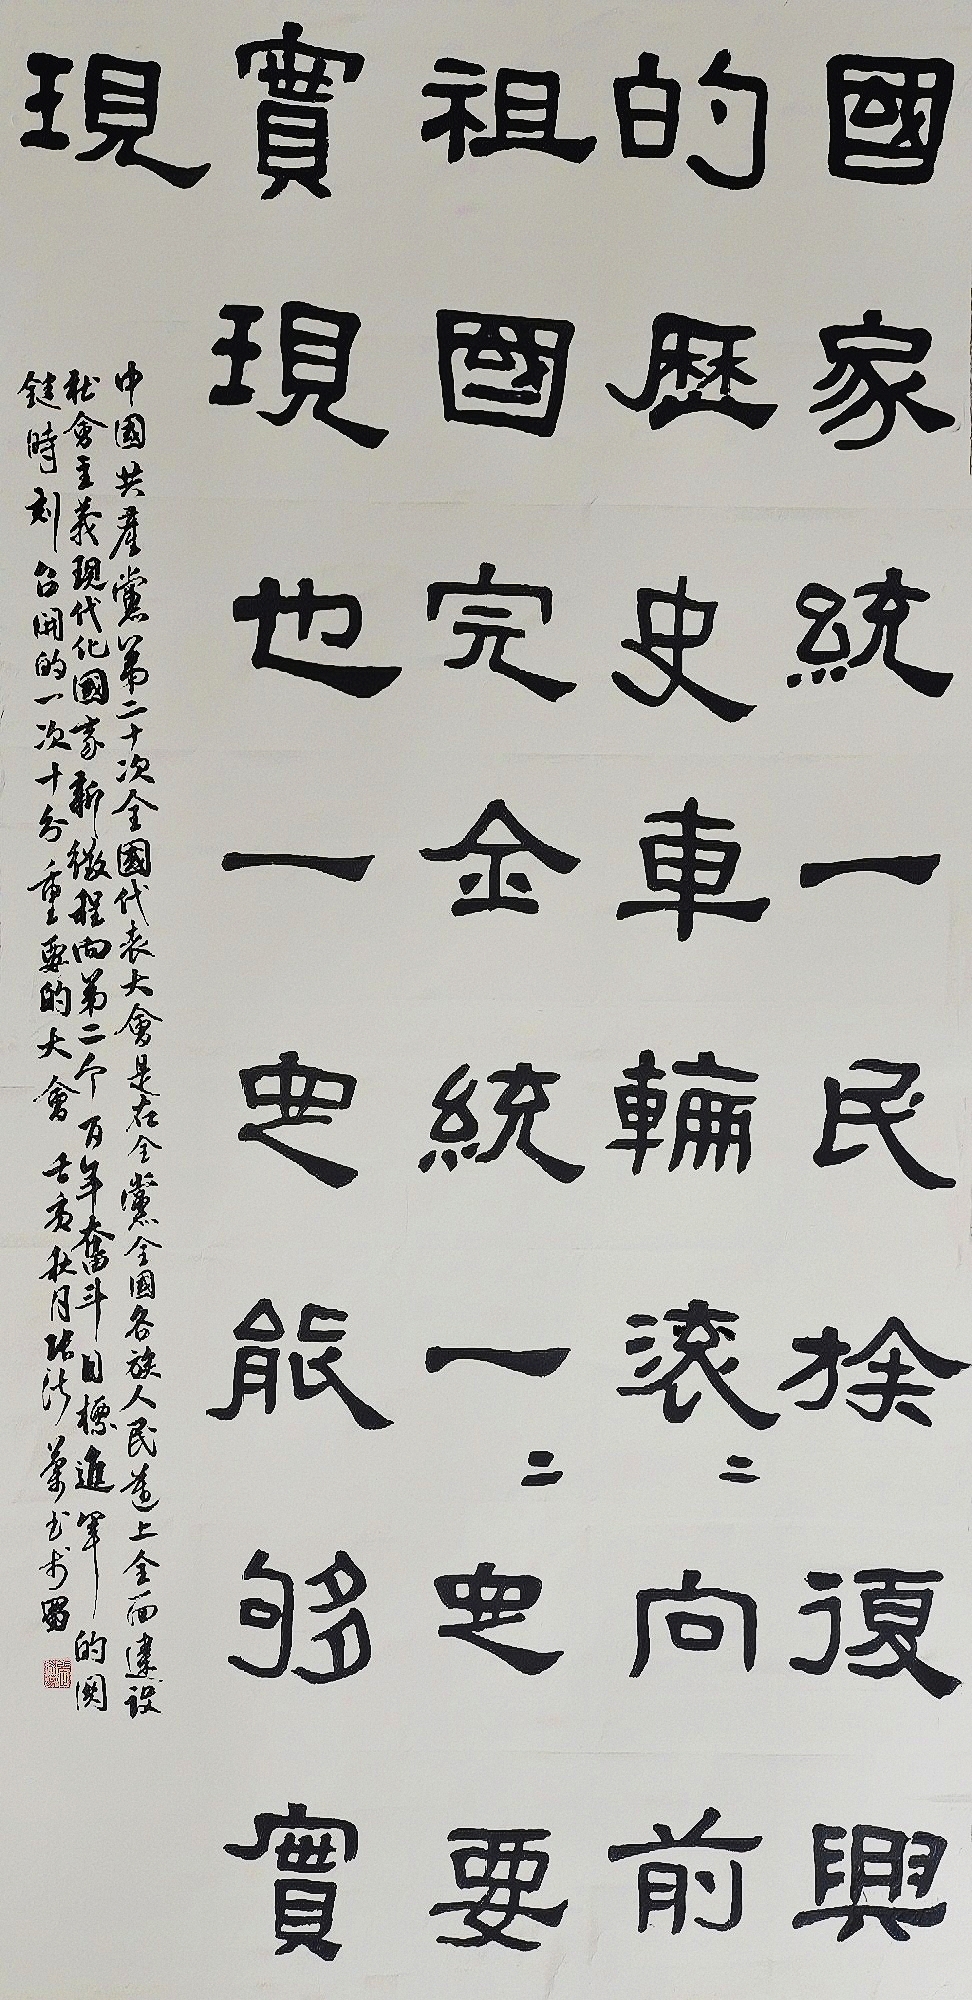 國家統一民族復興
的歷史車輪滾二向前
祖國完全統一二定要
實現也一定能够實
現
中國共產黨第二十次全國代表大會是在全黨全國各族人民邁上全面建設
社會主義現代化國家新徵程向第二个百年奮斗目標進軍的関
鍵時刻召開的一次十分重要的大會 秋月 書於蜀